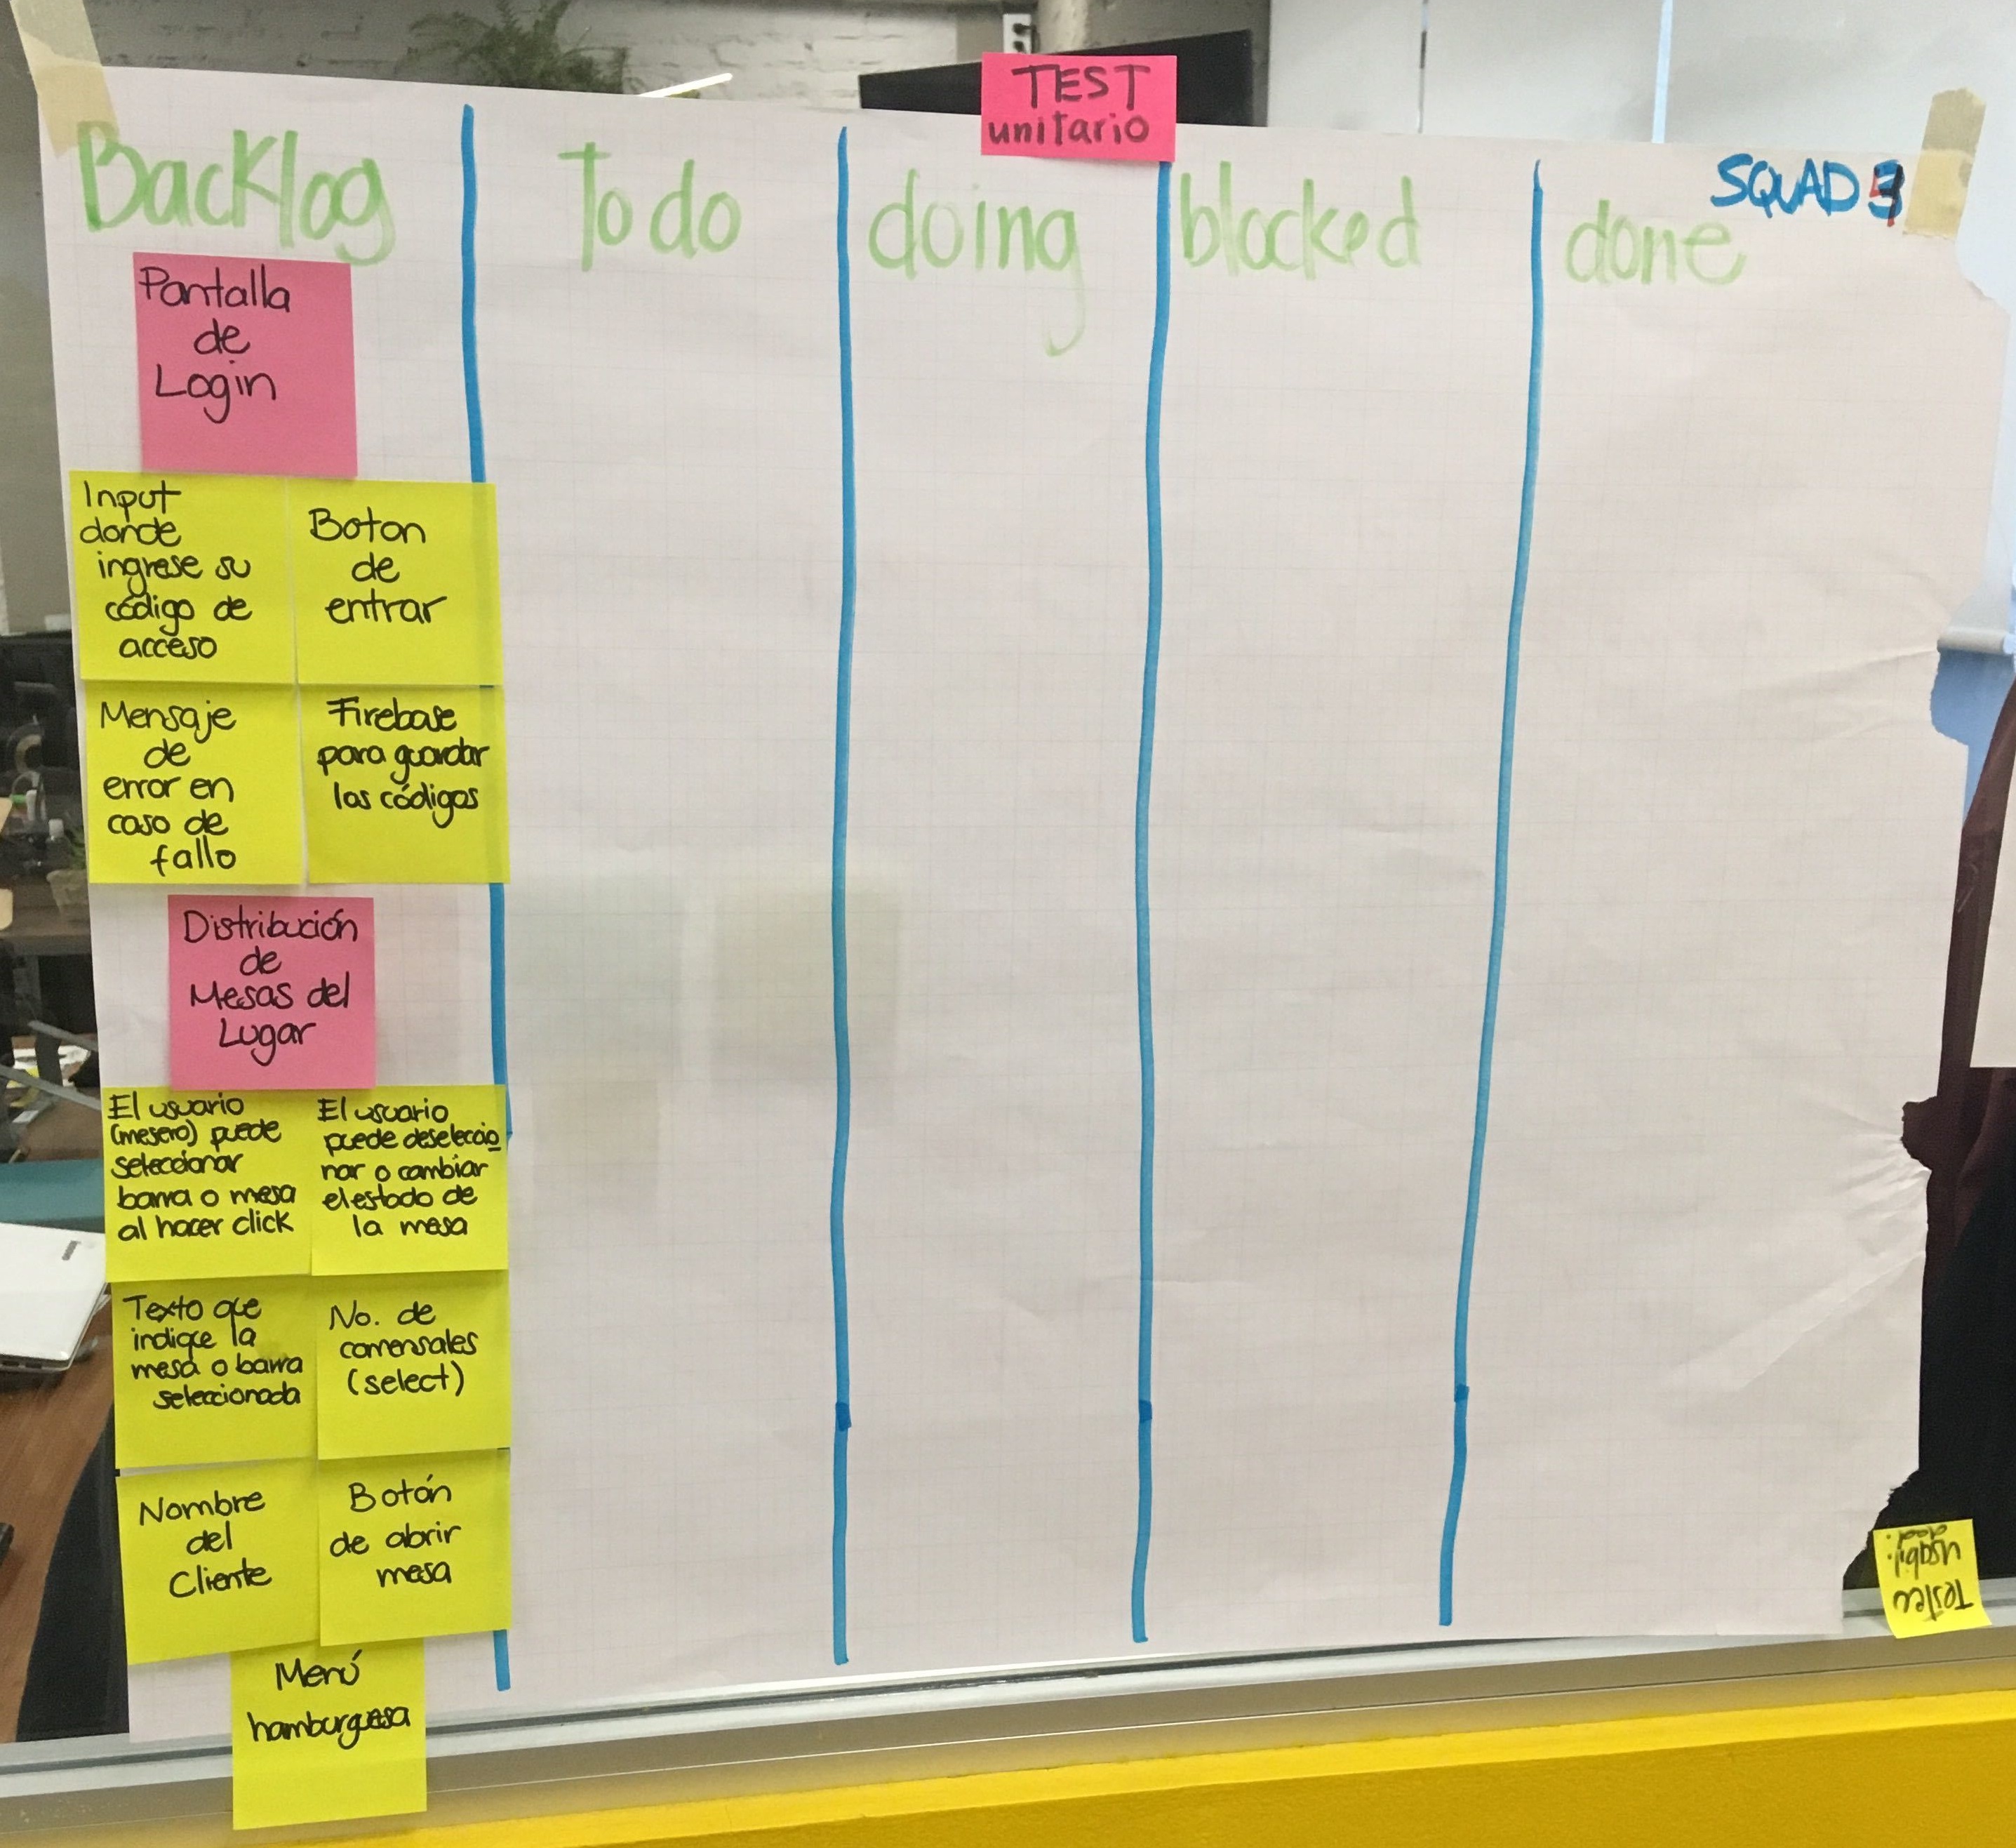 TEST
unitario
SQUAD
Backlog
To do
doing
blocked
done
Pantalla
de
Login
Input
donde
ingrese su
código de
acceso
Boton
de
entrar
Mensaje
de
error en
caso de
fallo
Firebase
para guardar
los códigos
Distribución
de
Mesas del
Lugar
El usuario
(mesero) puede
seleccionar
barra o mesa
al hacer click
El usuario
puede deseleccio
nar o cambiar
el estado de
la mesa
Texto que
indique la
mesa o barra
seleccionada
No. de
comensales
(select)
Nombre
del
Cliente
Botón
de abrir
mesa
Menú
hamburguesa
Usabil.
dad.